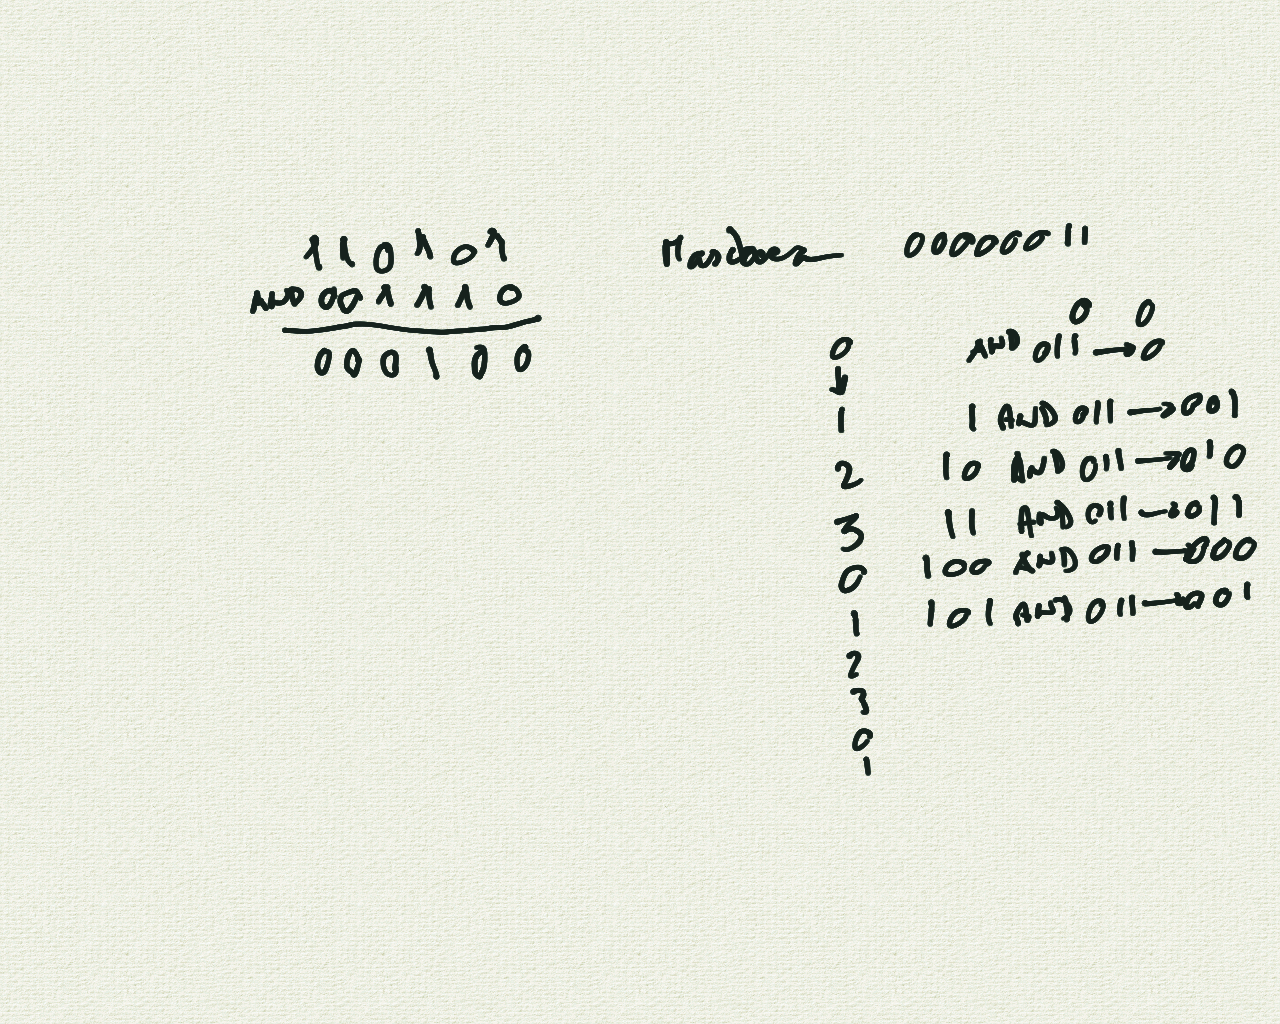 110101
AND 001110
000100
Mascara 00000011
0 0
0 AND 011 → 0
↓
1 1 AND 011 → 001
2 10 AND 011 → 010
3 11 AND 011 → 011
0 100 AND 011 → 000
1 101 AND 011 → 001
2
3
0
1